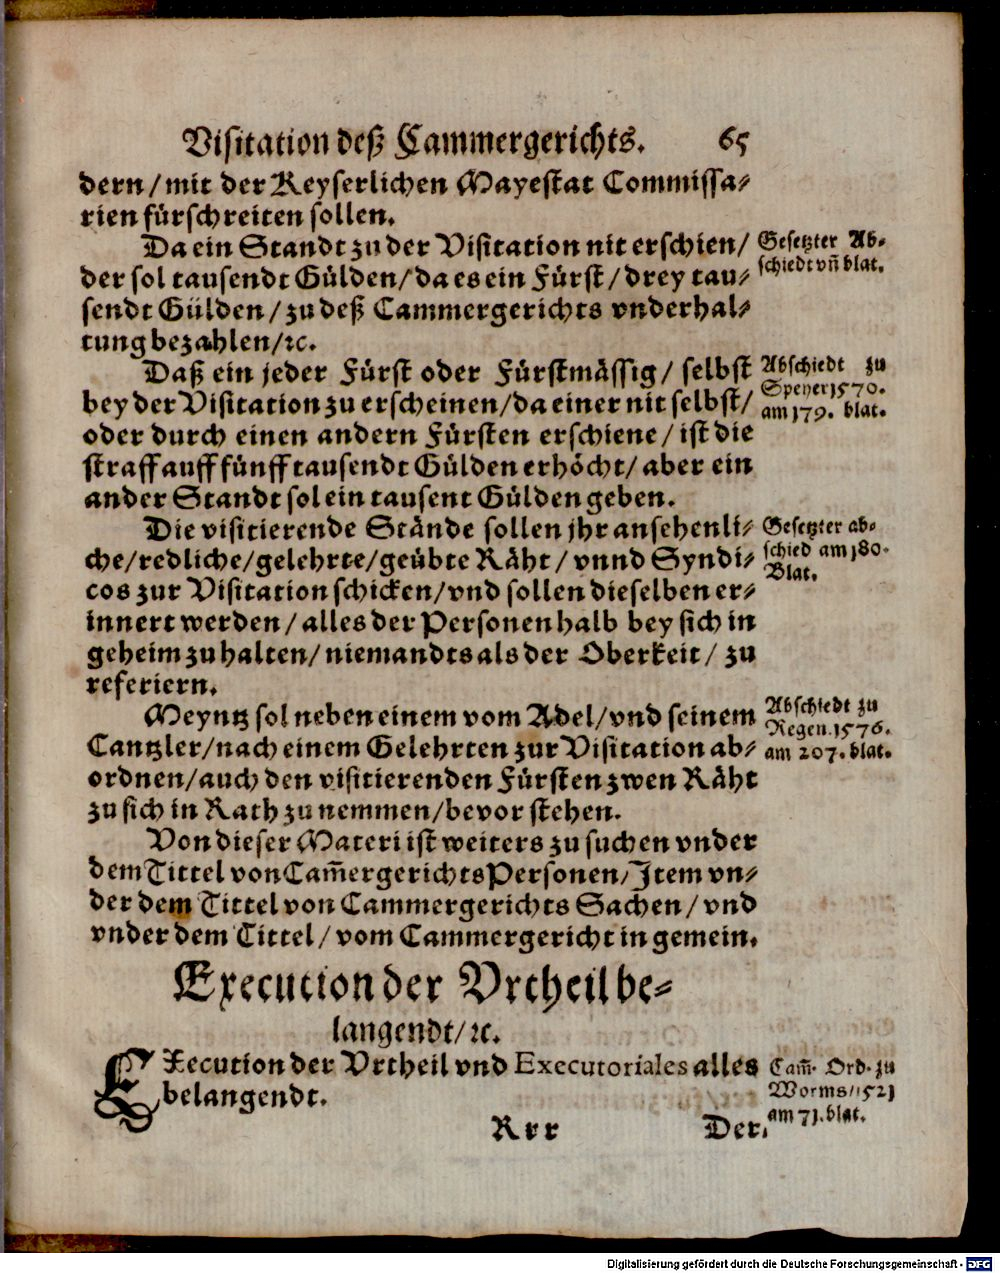 Visitation deß Cammergerichts. 65
dern/mit der Keyserlichen Mayestat Commissa-
rien fürschreiten sollen.
Da ein Standt zu der Visitation nit erschien/
der sol tausendt Gülden/da es ein Fürst/drey tau-
sendt Gülden/zu deß Cammergerichts vnderhal-
tung bezahlen/ꝛc.
Gesetzter Ab-
schiedt vñ blat.
Daß ein jeder Fürst oder Fürstmässig/selbst
bey der Visitation zu erscheinen/da einer nit selbst/
oder durch einen andern Fürsten erschiene/ist die
straff auff fünff tausendt Gülden erhöcht/aber ein
ander Standt sol ein tausent Gülden geben.
Abschiedt zu
Speyer 1570.
am 179. blat.
Die visitierende Stände sollen jhr ansehenli-
che/redliche/gelehrte/geübte Räht/vnnd Syndi-
cos zur Visitation schicken/vnd sollen dieselben er-
innert werden/alles der Personen halb bey sich in
geheim zu halten/niemandts als der Oberkeit/zu
referiern.
Gesetzter ab-
schied am 180.
Blat.
Meyntz sol neben einem vom Adel/vnd seinem
Cantzler/nach einem Gelehrten zur Visitation ab-
ordnen/auch den visitierenden Fürsten zwen Räht
zu sich in Rath zu nemmen/bevor stehen.
Abschiedt zu
Regen. 1576.
am 207. blat.
Von dieser Materi ist weiters zu suchen vnder
dem Tittel von Cam̃ergerichts Personen/Item vn-
der dem Tittel von Cammergerichts Sachen/vnd
vnder dem Tittel/vom Cammergericht in gemein.
Execution der Vrtheil be-
langendt/ꝛc.
EXecution der Vrtheil vnd Executoriales alles
belangendt.
Cam̃. Ord. zu
Worms/1521
am 71. blat.
Rrr Der
Digitalisierung gefördert durch die Deutsche Forschungsgemeinschaft - DFG